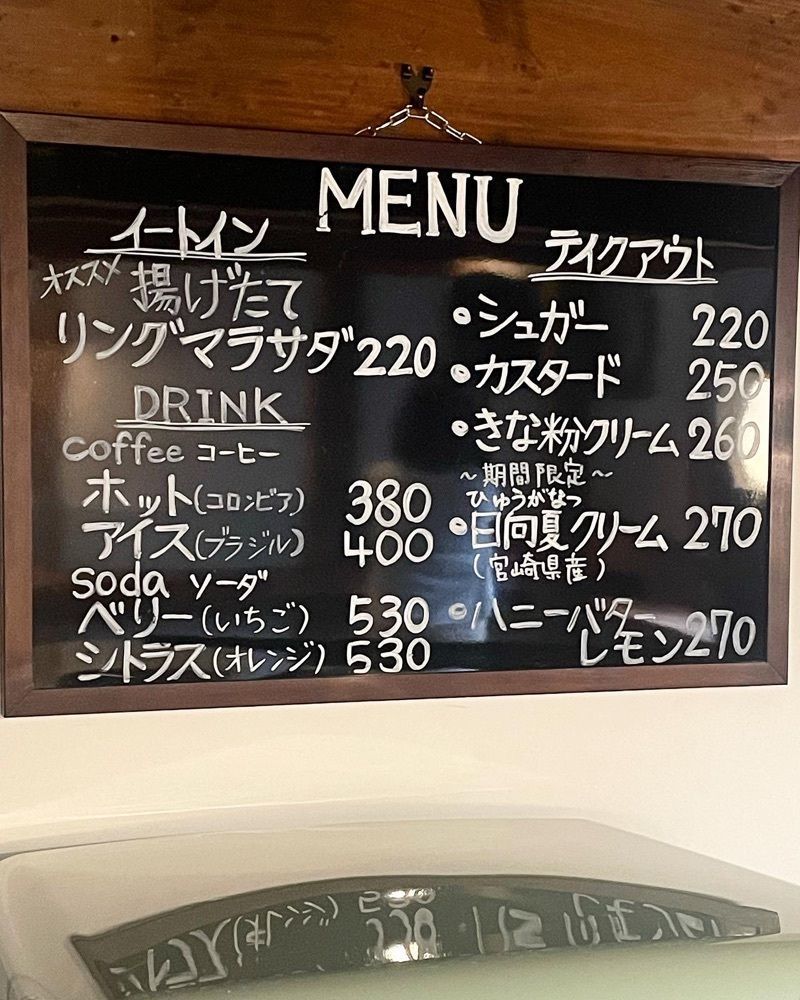 MENU
イートイン
オススメ 揚げたて
リングマラサダ 220
DRINK
coffee コーヒー
ホット(コロンビア) 380
アイス(ブラジル) 400
soda ソーダ
ベリー(いちご) 530
シトラス(オレンジ) 530
テイクアウト
・シュガー 220
・カスタード 250
・きな粉クリーム 260
～期間限定～
ひゅうがなつ
・日向夏クリーム 270
(宮崎県産)
・ハニーバター
レモン 270